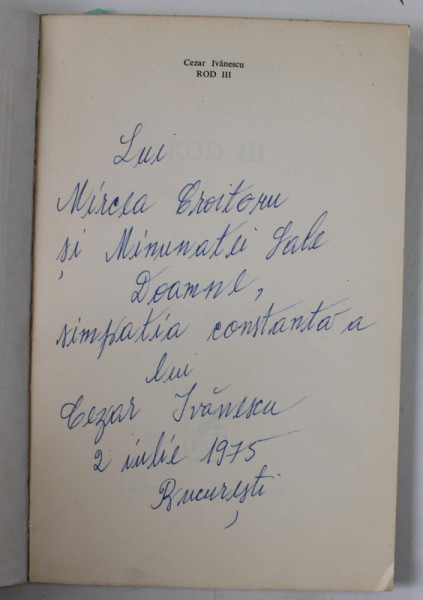 Cezar Ivănescu
ROD III
Lui
Mircea Croitoru
și Minunatei Sale
Doamne,
simpatia constantă a
lui
Cezar Ivănescu
2 iulie 1975
București